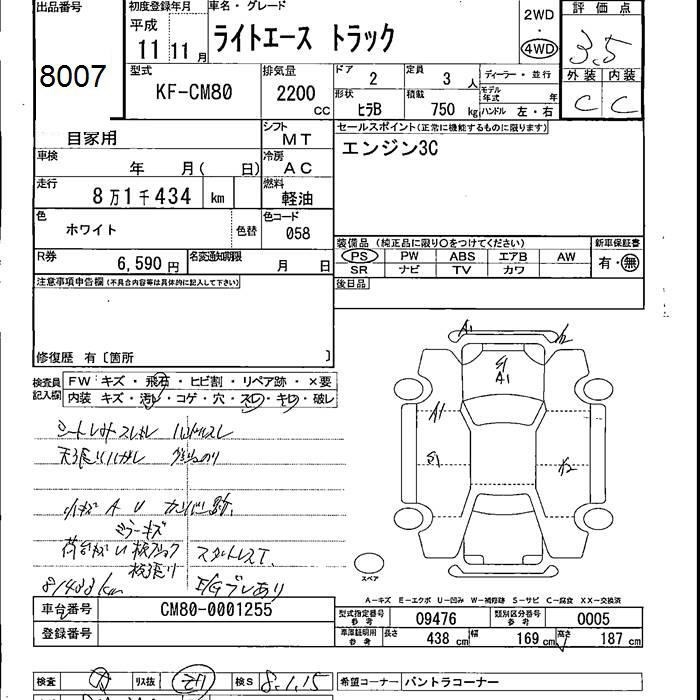 出品番号
8007
初度登録年月
平成
11 11 月
車名・グレード
ライトエース トラック
2WD
4WD
評価点
3.5
外装 内装
C C
型式
KF-CM80
排気量
2200
CC
ドア
2
定員
3 人
ディーラー・並行
形状
ヒラB
積載
750 kg
モデル年式 年
ハンドル 左・右
自家用
シフト
MT
セールスポイント(正常に機能するものに限ります)
エンジン3C
車検
年 月( 日)
冷房
AC
走行
8万1千434 km
燃料
軽油
色
ホワイト
色替
色コード
058
R券
6,590 円
名変通知期限
月 日
装備品 (純正品に限り○をつけてください)
PS PW ABS エアB AW
SR ナビ TV カワ
新車保証書
有・無
後日品
注意事項申告欄(不具合内容等は具体的に記載して下さい)
修復歴 有〔箇所 〕
検査員記入欄
FW キズ・飛石・ヒビ割・リペア跡・×要
内装 キズ・汚レ・コゲ・穴・スレ・キレ・破レ
A1
S1
A1
A1
S1
小キズ A U カンバン跡
ミラーキズ
スタットレスT.
81433km
E/Gブレあり
スペア
A-キズ E-エクボ U-凹み W-補修跡 S-サビ C-腐食 XX-交換済
車台番号
CM80-0001255
登録番号
型式指定番号
参考
09476
類別区分番号
参考
0005
車庫証明用
参考
長さ
438 cm
幅
169 cm
高さ
187 cm
検査
リス抜
検S
8.1.15
希望コーナー
バントラコーナー